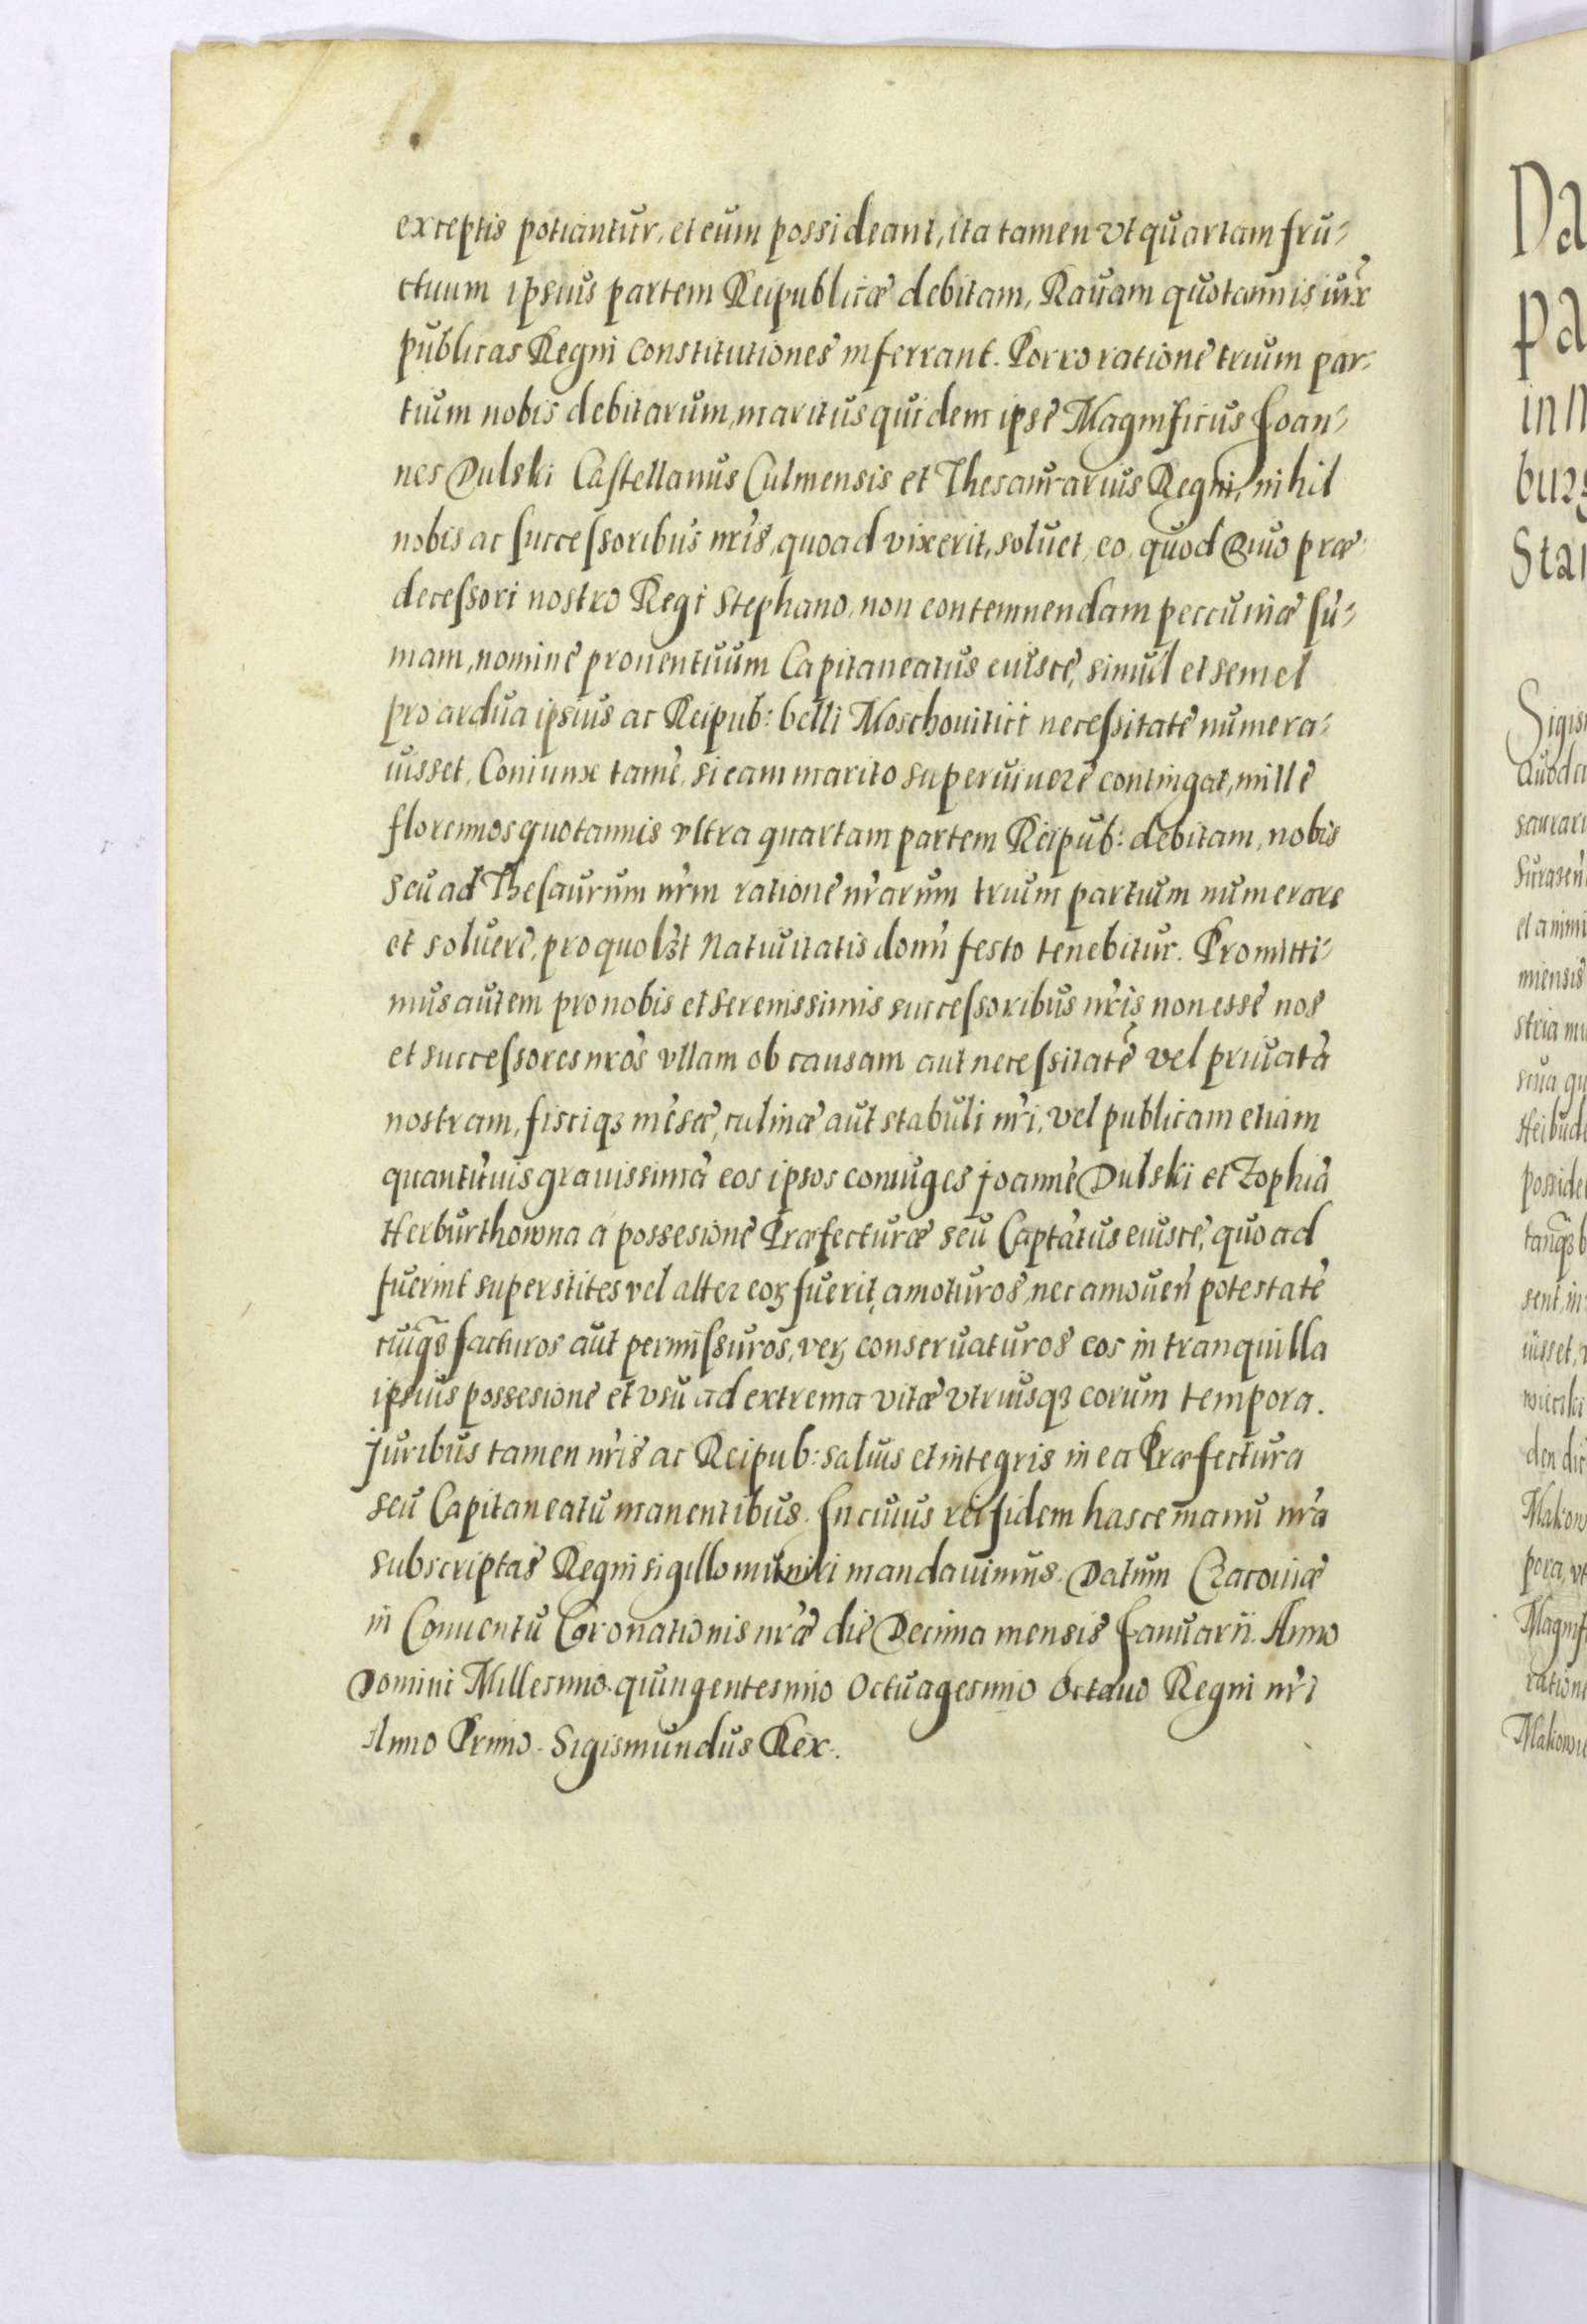 exceptis potiantur, et eum possideant, ita tamen vt quartam fru-
ctuum ipsius partem Reipublicæ debitam, Rauam quotannis iux̃
publicas Regni Constitutiones inferrant. Porro ratione trium par-
tium nobis debitarum, maritus quidem ipse Magnificus Joan-
nes Dulski Castellanus Culmensis et Thesaurarius Regni, nihil
nobis ac successoribus nr̃is, quoad vixerit, soluet, eo, quod Diuo præ
decessori nostro Regi Stephano, non contemnendam peccuniæ sũ-
mam, nomine prouentuum Capitaneatus eiusce, simul et semel
pro ardua ipsius ac Reipub: belli Moschouitici necessitate numera-
uisset, Coniunx tamẽ, si eam marito superuiuere contingat, mille
florennos quotannis vltra quartam partem Reipub: debitam, nobis
seu ad Thesaurum nr̃m ratione nr̃arum trium partium numerare
et soluere, pro quolꝫt Natiuitatis domñ festo tenebitur. Promitti-
mus autem pro nobis et Serenissimis successoribus nr̃is non esse nos
et successores nr̃os vllam ob causam aut necessitatẽ vel priuatã
nostram, fisciqꝫ mẽsæ, culinæ aut stabuli nr̃i, vel publicam etiam
quantũuis grauissimã eos ipsos coniuges Joannẽ Dulski et Zophiã
Herburthowna á possesione Præfecturæ seu Captãtus eiusce, quoad
fuerint superstites vel alter eoꝝ fuerit, amoturos, nec amouen̄ potestatẽ
cuiqꝫ facturos aut permissuros, veꝝ conseruaturos eos in tranquilla
ipsius possesione et vsu ad extrema vitæ vtriusqꝫ eorum tempora.
Juribus tamen nr̃is ac Reipub: saluis et integris in ea Præfectura
seu Capitaneatu manentibus. In cuius rei fidem hasce manu nr̃a
subscriptas Regni sigillo muniri mandauimus. Datum Cracouiæ
in Conuentu Coronationis nr̃æ die Decima mensis Januarii. Anno
Domini Millesimo quingentesimo Octuagesimo Octauo Regni nr̃i
Anno Primo. Sigismundus Rex.